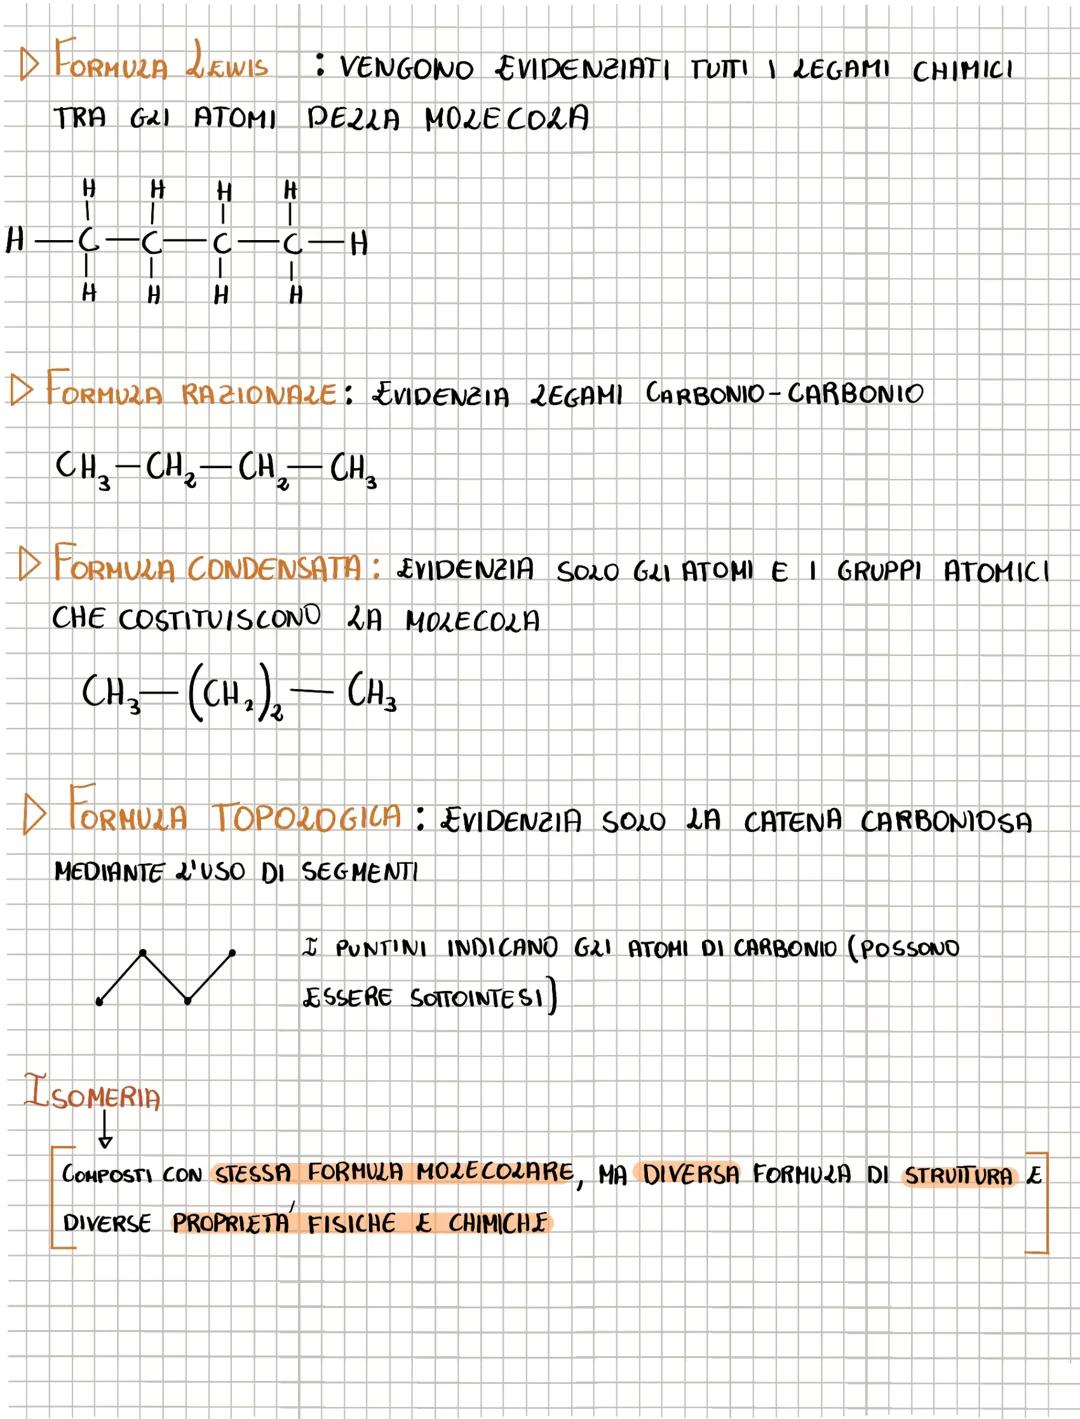 FORMULA LEWIS : VENGONO EVIDENZIATI TUTTI I LEGAMI CHIMICI
TRA GLI ATOMI DELLA MOLECOLA
H H H H
H—C—C—C—C—H
H H H H
FORMULA RAZIONALE: EVIDENZIA LEGAMI CARBONIO-CARBONIO
CH₃—CH₂—CH₂—CH₃
FORMULA CONDENSATA: EVIDENZIA SOLO GLI ATOMI E I GRUPPI ATOMICI
CHE COSTITUISCONO LA MOLECOLA
CH₃—(CH₂)₂—CH₃
FORMULA TOPOLOGICA: EVIDENZIA SOLO LA CATENA CARBONIOSA
MEDIANTE L'USO DI SEGMENTI
I PUNTINI INDICANO GLI ATOMI DI CARBONIO (POSSONO
ESSERE SOTTOINTESI)
ISOMERIA
COMPOSTI CON STESSA FORMULA MOLECOLARE, MA DIVERSA FORMULA DI STRUTTURA E
DIVERSE PROPRIETA' FISICHE E CHIMICHE